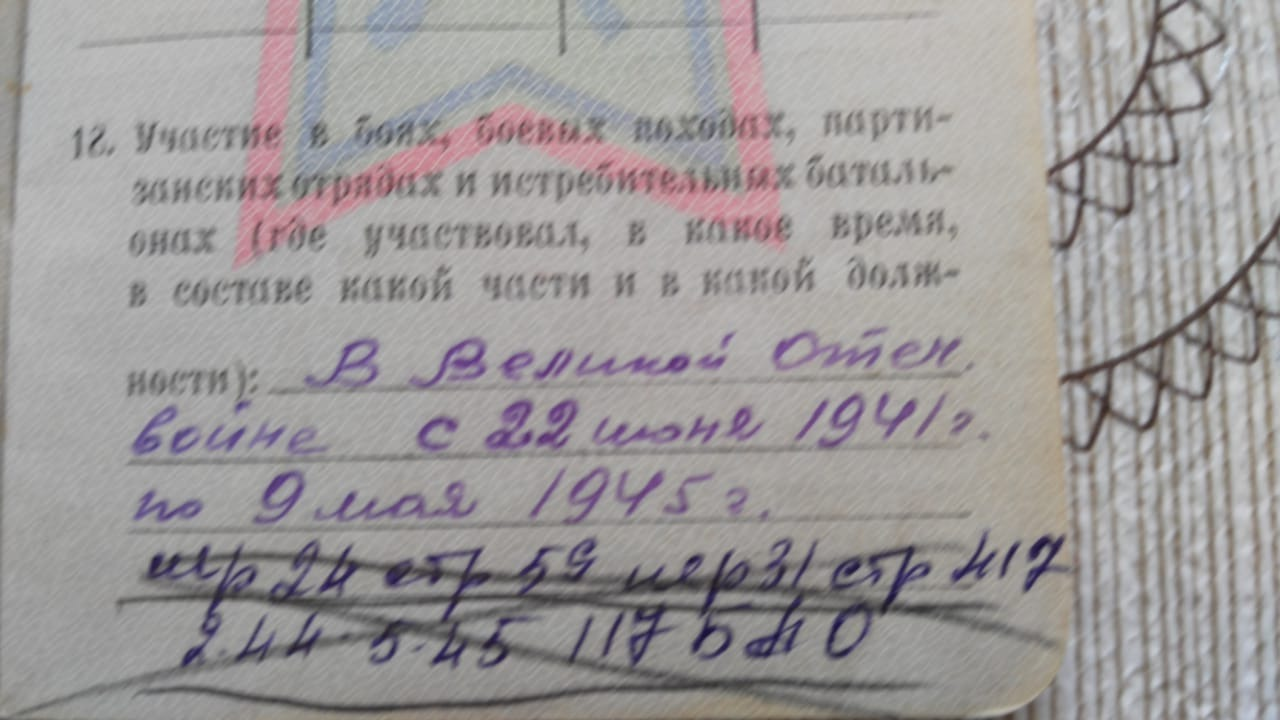 12. Участие в боях, боевых походах, парти-
занских отрядах и истребительных баталь-
онах (где участвовал, в какое время,
в составе какой части и в какой долж-
ности): В Великой Отеч.
войне с 22 июня 1941 г.
по 9 мая 1945 г.
пер 24 стр 59 пер 31 стр 417
2.44 5.45 117 0